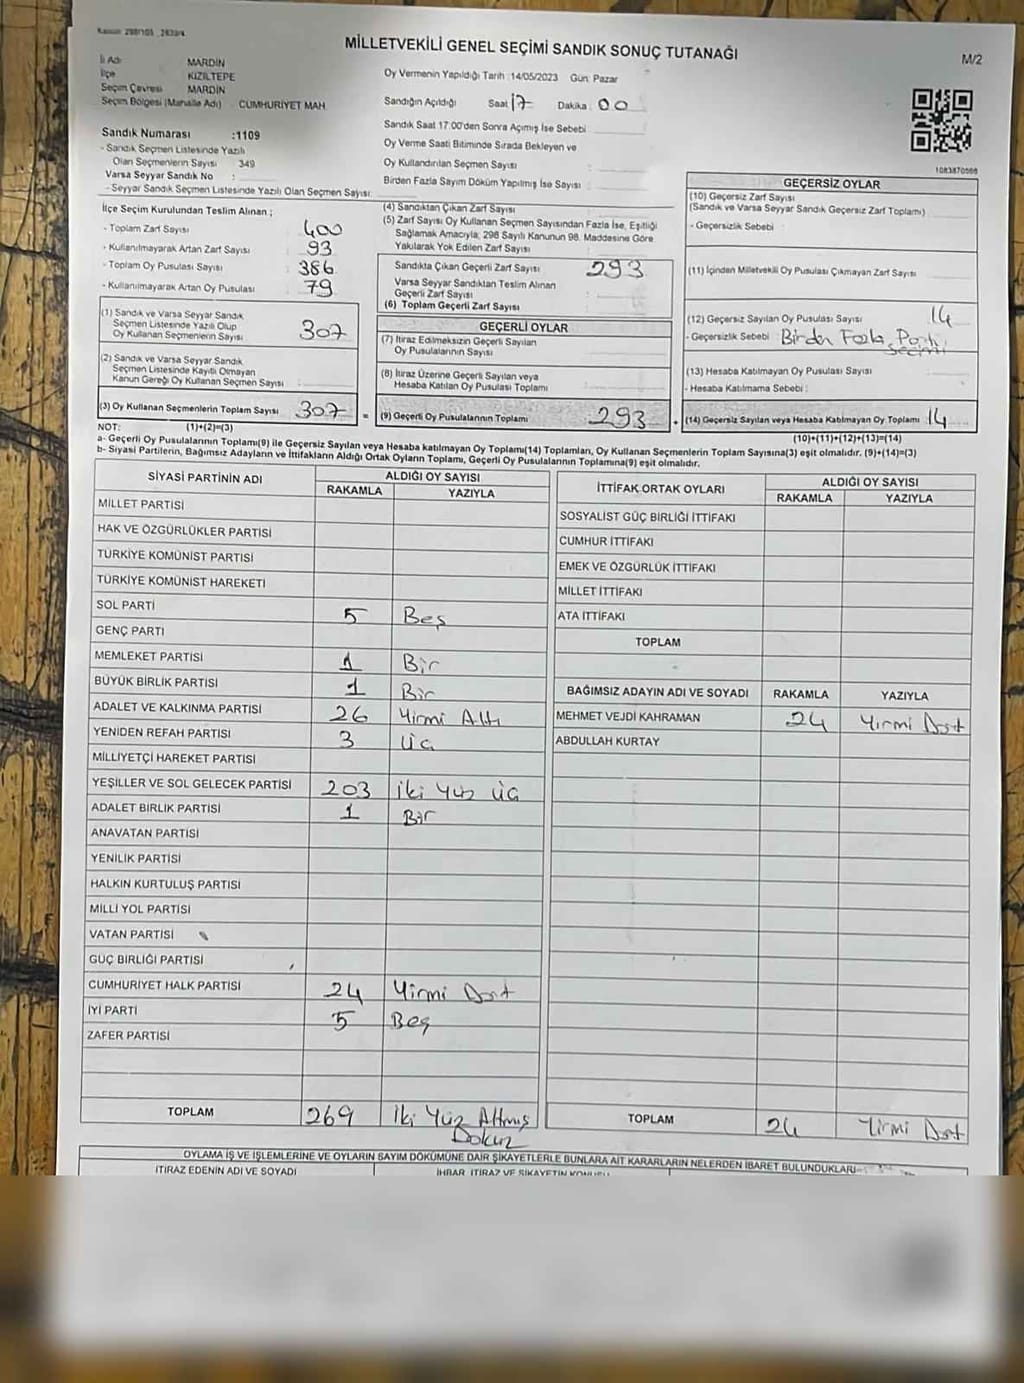 MİLLETVEKİLİ GENEL SEÇİMİ SANDIK SONUÇ TUTANAĞI
M/2
İl Adı MARDİN
İlçe KIZILTEPE
Seçim Çevresi MARDİN
Seçim Bölgesi (Mahalle Adı) CUMHURİYET MAH.
Sandık Numarası :1109
- Sandık Seçmen Listesinde Yazılı
Olan Seçmenlerin Sayısı 349
Varsa Seyyar Sandık No :
- Seyyar Sandık Seçmen Listesinde Yazılı Olan Seçmen Sayısı:
Oy Vermenin Yapıldığı Tarih :14/05/2023 Gün: Pazar
Sandığın Açıldığı Saat 17 Dakika 00
Sandık Saat 17:00'den Sonra Açımış İse Sebebi
Oy Verme Saati Bitiminde Sırada Bekleyen ve
Oy Kullandırılan Seçmen Sayısı
Birden Fazla Sayım Döküm Yapılmış İse Sayısı
1083870566
İlçe Seçim Kurulundan Teslim Alınan ;
- Toplam Zarf Sayısı 400
- Kullanılmayarak Artan Zarf Sayısı 93
- Toplam Oy Pusulası Sayısı 386
- Kullanılmayarak Artan Oy Pusulası 79
(1) Sandık ve Varsa Seyyar Sandık
Seçmen Listesinde Yazılı Olup
Oy Kullanan Seçmenlerin Sayısı 307
(2) Sandık ve Varsa Seyyar Sandık
Seçmen Listesinde Kayıtlı Olmayan
Kanun Gereği Oy Kullanan Seçmen Sayısı
(3) Oy Kullanan Seçmenlerin Toplam Sayısı 307 =
(4) Sandıktan Çıkan Zarf Sayısı
(5) Zarf Sayısı Oy Kullanan Seçmen Sayısından Fazla İse, Eşitliği
Sağlamak Amacıyla, 298 Sayılı Kanunun 98. Maddesine Göre
Yakılarak Yok Edilen Zarf Sayısı
Sandıkta Çıkan Geçerli Zarf Sayısı 293
Varsa Seyyar Sandıktan Teslim Alınan
Geçerli Zarf Sayısı
(6) Toplam Geçerli Zarf Sayısı
GEÇERLİ OYLAR
(7) İtiraz Edilmeksizin Geçerli Sayılan
Oy Pusulalarının Sayısı
(8) İtiraz Üzerine Geçerli Sayılan veya
Hesaba Katılan Oy Pusulası Toplamı
(9) Geçerli Oy Pusulalarının Toplamı 293 +
GEÇERSİZ OYLAR
(10) Geçersiz Zarf Sayısı
(Sandık ve Varsa Seyyar Sandık Geçersiz Zarf Toplamı)
- Geçersizlik Sebebi
(11) İçinden Milletvekili Oy Pusulası Çıkmayan Zarf Sayısı
(12) Geçersiz Sayılan Oy Pusulası Sayısı 14
- Geçersizlik Sebebi Birden Fazla Parti
seçimi
(13) Hesaba Katılmayan Oy Pusulası Sayısı
- Hesaba Katılmama Sebebi :
(14) Geçersiz Sayılan veya Hesaba Katılmayan Oy Toplamı 14
NOT: (1)+(2)=(3)
(10)+(11)+(12)+(13)=(14)
a- Geçerli Oy Pusulalarının Toplamı(9) ile Geçersiz Sayılan veya Hesaba katılmayan Oy Toplamı(14) Toplamları, Oy Kullanan Seçmenlerin Toplam Sayısına(3) eşit olmalıdır. (9)+(14)=(3)
b- Siyasi Partilerin, Bağımsız Adayların ve İttifakların Aldığı Ortak Oyların Toplamı, Geçerli Oy Pusulalarının Toplamına(9) eşit olmalıdır.
SİYASİ PARTİNİN ADI ALDIĞI OY SAYISI
RAKAMLA YAZIYLA
MİLLET PARTİSİ
HAK VE ÖZGÜRLÜKLER PARTİSİ
TÜRKİYE KOMÜNİST PARTİSİ
TÜRKİYE KOMÜNİST HAREKETİ
SOL PARTİ 5 Beş
GENÇ PARTİ
MEMLEKET PARTİSİ 1 Bir
BÜYÜK BİRLİK PARTİSİ 1 Bir
ADALET VE KALKINMA PARTİSİ 26 Yirmi Altı
YENİDEN REFAH PARTİSİ 3 Üç
MİLLİYETÇİ HAREKET PARTİSİ
YEŞİLLER VE SOL GELECEK PARTİSİ 203 iki yüz üç
ADALET BİRLİK PARTİSİ 1 Bir
ANAVATAN PARTİSİ
YENİLİK PARTİSİ
HALKIN KURTULUŞ PARTİSİ
MİLLİ YOL PARTİSİ
VATAN PARTİSİ
GÜÇ BİRLİĞİ PARTİSİ
CUMHURİYET HALK PARTİSİ 24 Yirmi Dört
İYİ PARTİ 5 Beş
ZAFER PARTİSİ
TOPLAM 269 iki Yüz Altmış
Dokuz
İTTİFAK ORTAK OYLARI ALDIĞI OY SAYISI
RAKAMLA YAZIYLA
SOSYALİST GÜÇ BİRLİĞİ İTTİFAKI
CUMHUR İTTİFAKI
EMEK VE ÖZGÜRLÜK İTTİFAKI
MİLLET İTTİFAKI
ATA İTTİFAKI
TOPLAM
BAĞIMSIZ ADAYIN ADI VE SOYADI RAKAMLA YAZIYLA
MEHMET VEJDİ KAHRAMAN 24 Yirmi Dört
ABDULLAH KURTAY
TOPLAM 24 Yirmi Dört
OYLAMA İŞ VE İŞLEMLERİNE VE OYLARIN SAYIM DÖKÜMÜNE DAİR ŞİKAYETLERLE BUNLARA AİT KARARLARIN NELERDEN İBARET BULUNDUKLARI
İTİRAZ EDENİN ADI VE SOYADI İHBAR, İTİRAZ VE ŞİKAYETİN KONUSU